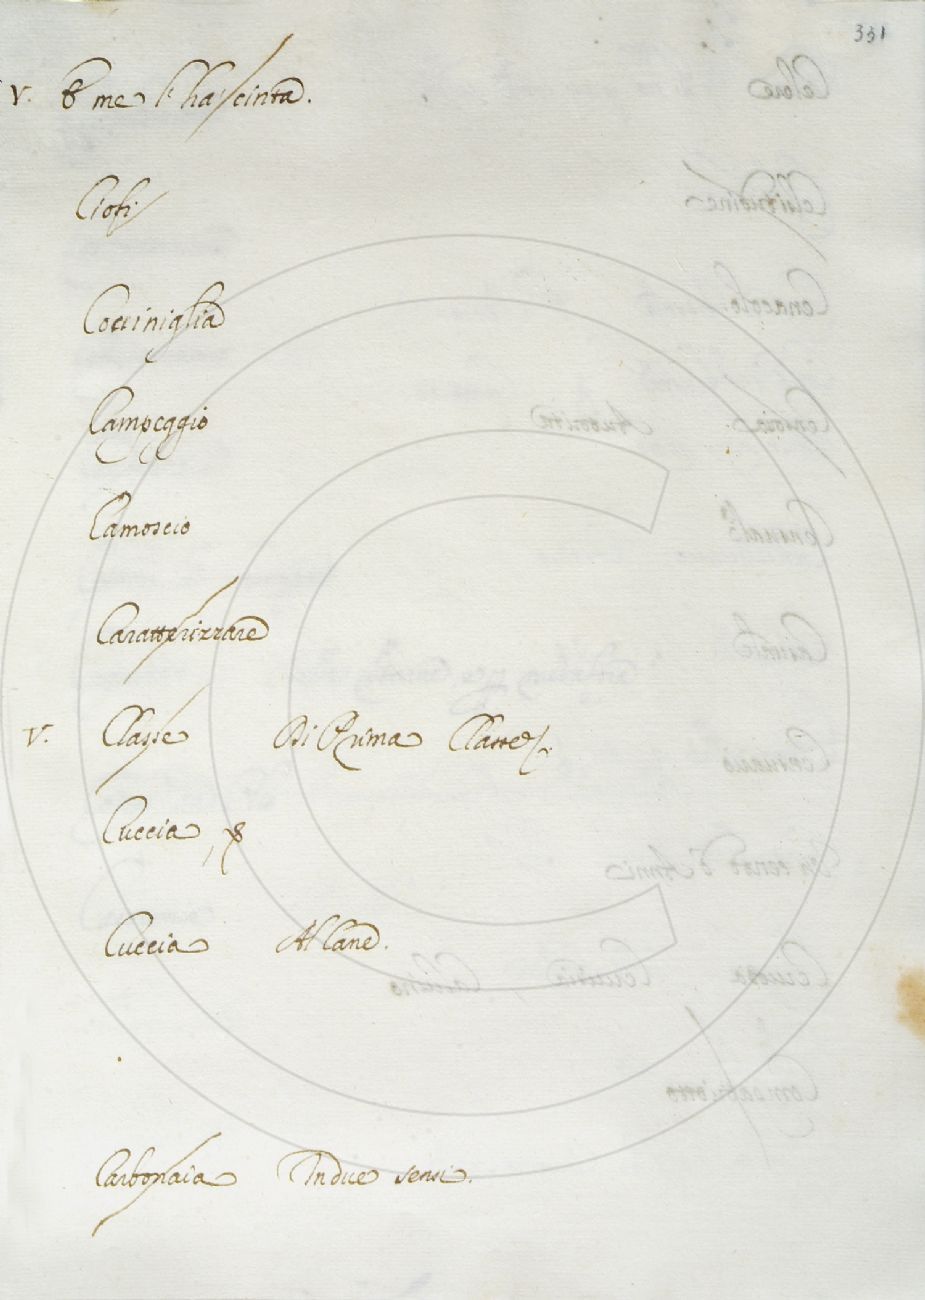 331
V. E me l'ha cinta.
Ciofi
Cocciniglia
Campeggio
Camoscio
Caratterizzare
V. Classe Di Prima Classe.
Cuccia,
Cuccia Al Cane.
Carbonaia Indice sensi.